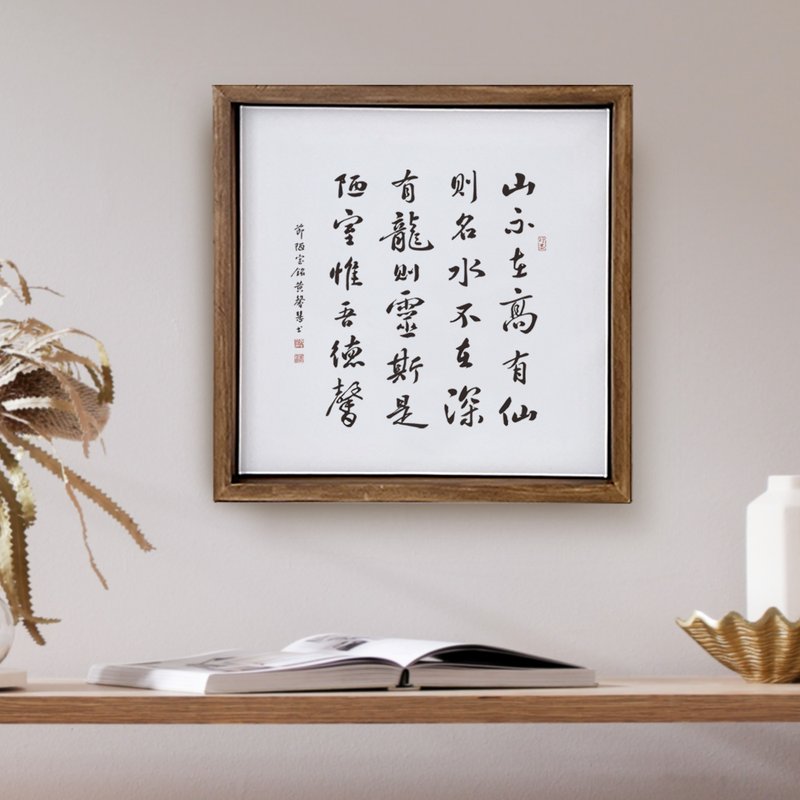 山不在高有仙
则名水不在深
有龍则靈斯是
陋室惟吾德馨
節陋室铭黄馨书